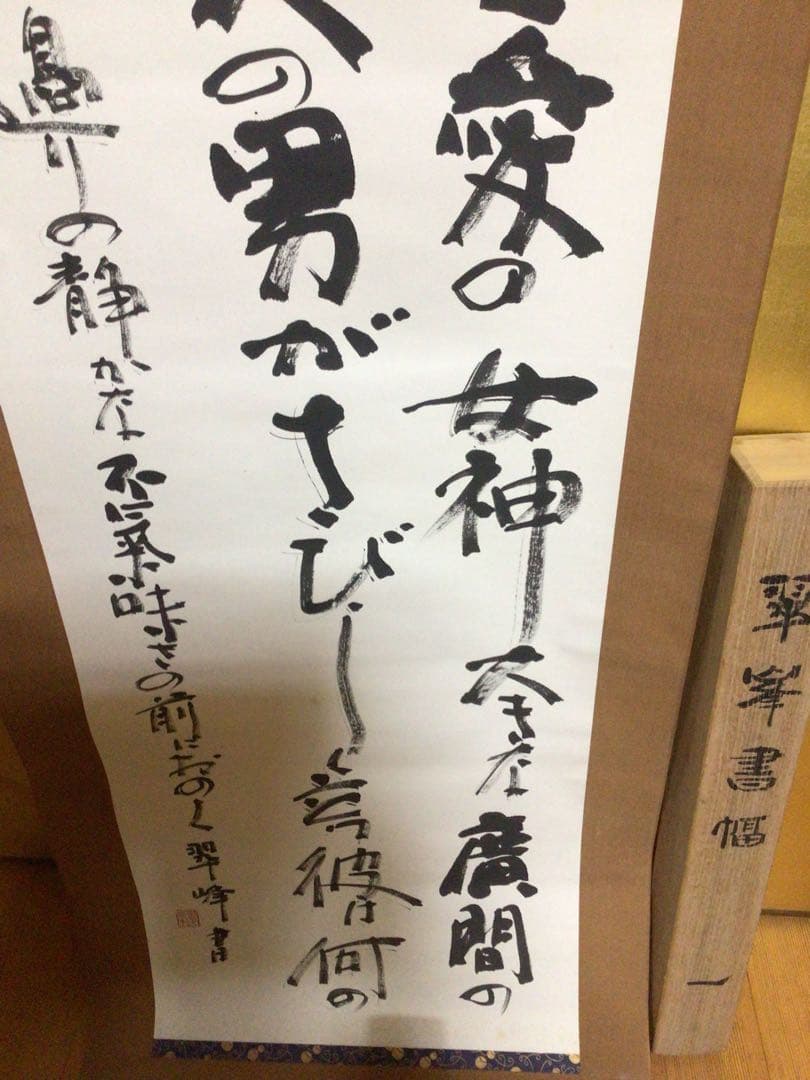 愛の女神大きな廣間の
の男がさびしく彼は何の
邊りの静かな不氣味さの前におのく 翠峰書
翠峯書幅 一